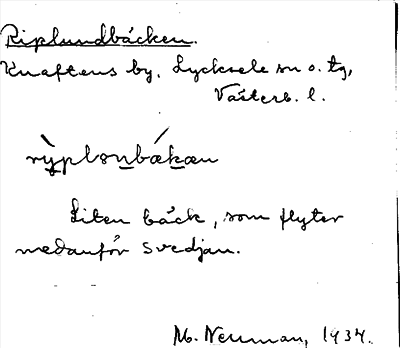 Riplundbäcken.
Knaftens by, Lycksele sn o. tg,
Västerb. l.
rỳplsnbækæn
Liten bäck, som flyter
nedanför Svedjan.
M. Neuman, 1934.